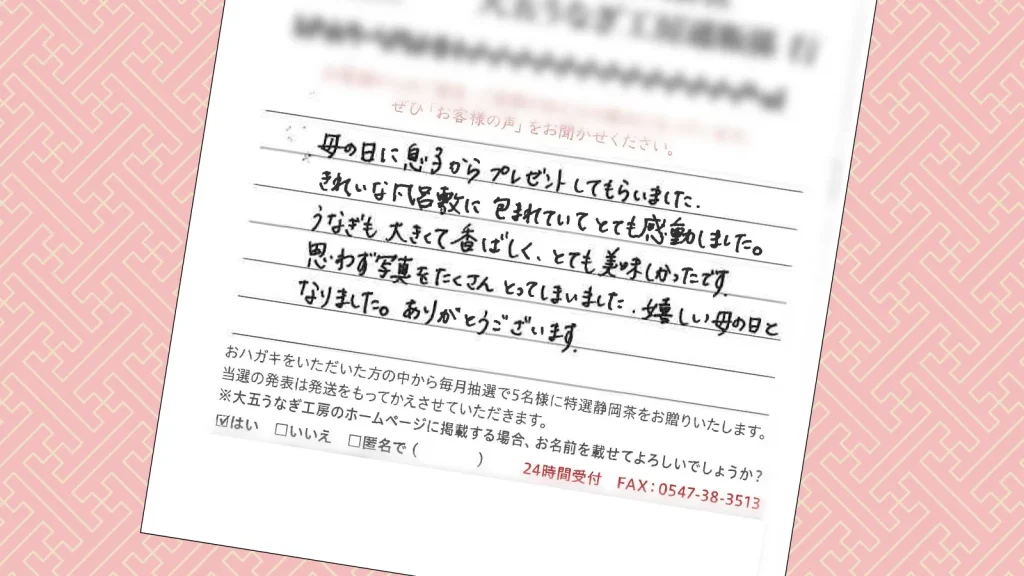 大五うなぎ工房通販係 行
ぜひ「お客様の声」をお聞かせください。
母の日に息子からプレゼントしてもらいました.
きれいな風呂敷に包まれていてとても感動しました。
うなぎも大きくて香ばしく、とても美味しかったです.
思わず写真をたくさんとってしまいました.嬉しい母の日と
なりました。ありがとうございます.
おハガキをいただいた方の中から毎月抽選で5名様に特選静岡茶をお贈りいたします。
当選の発表は発送をもってかえさせていただきます。
※大五うなぎ工房のホームページに掲載する場合、お名前を載せてよろしいでしょうか?
☑はい □いいえ □匿名で( )
24時間受付 FAX:0547-38-3513